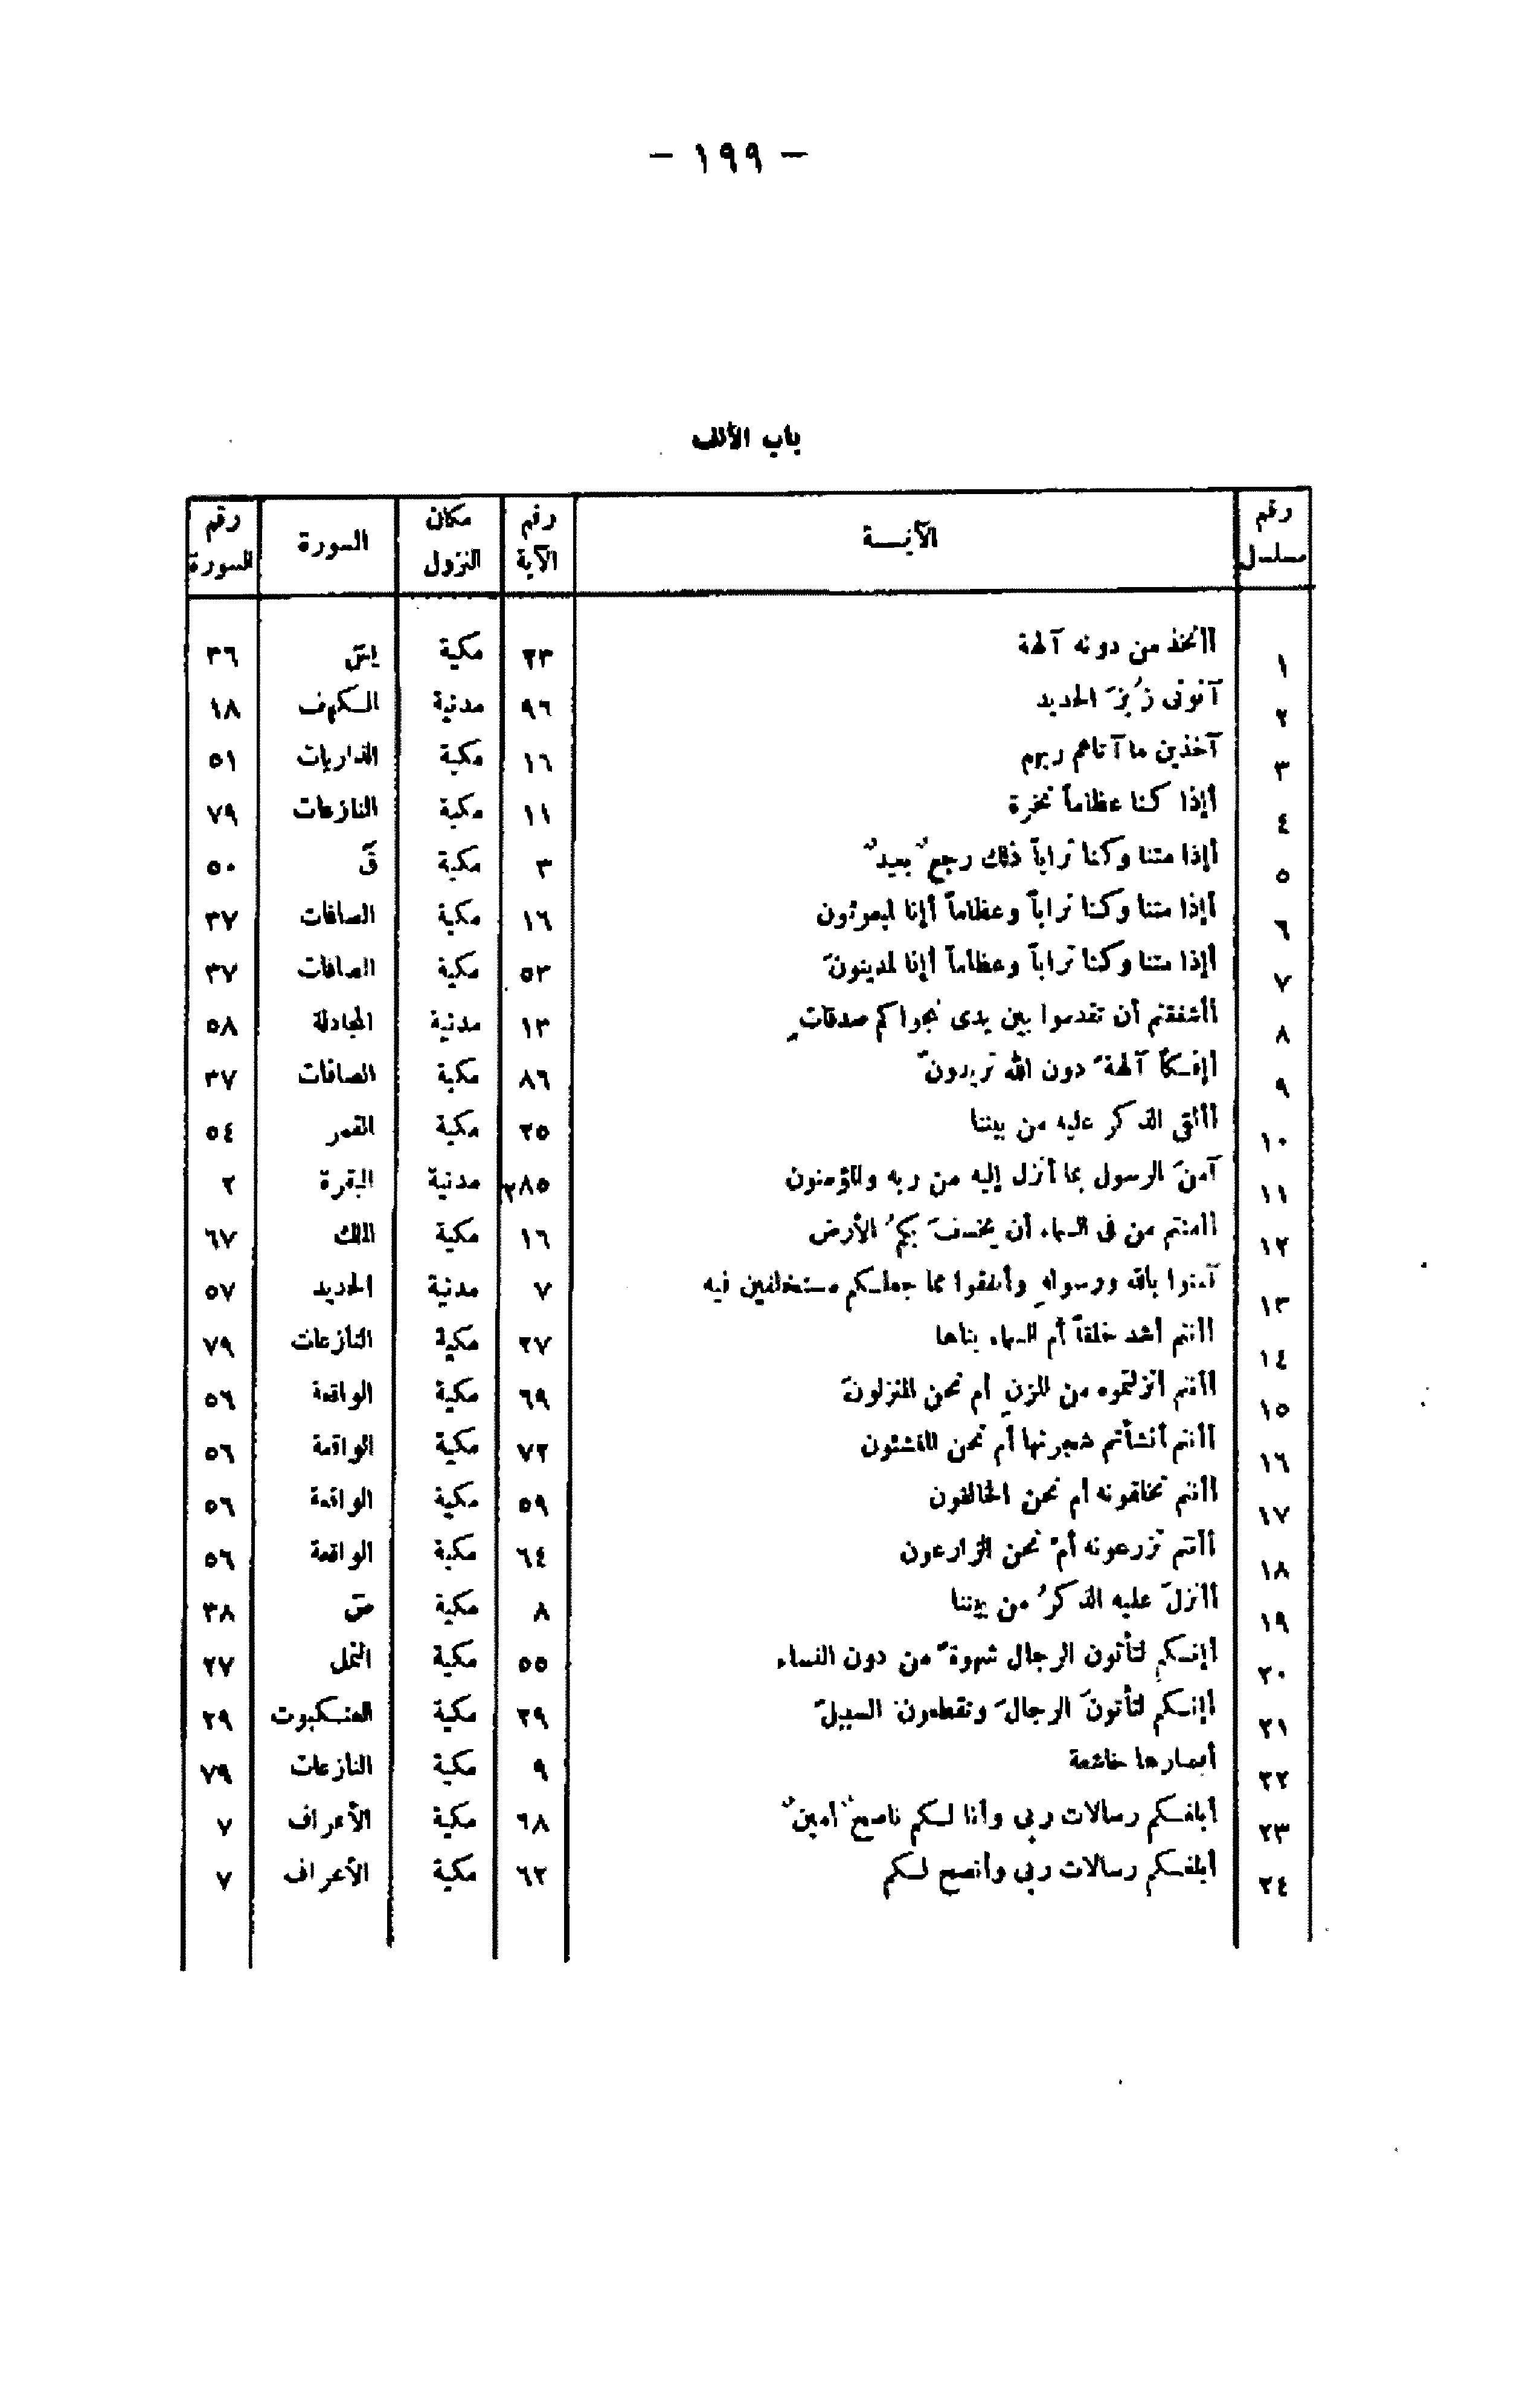 — ١٩٩ —
باب الألف
رقم مسلسل | الآيـــة | رقم الآية | مكان النزول | السورة | رقم السورة
١ | أأتخذ من دونه آلهة | ٢٣ | مكية | يسٓ | ٣٦
٢ | آتونى زُبرَ الحديد | ٩٦ | مدنية | الـكهف | ١٨
٣ | آخذين ما آتاهم ربهم | ١٦ | مكية | الذاريات | ٥١
٤ | أإذا كنا عظاماً نخرة | ١١ | مكية | النازعات | ٧٩
٥ | أإذا متنا وكنا تراباً ذلك رجعٌ بعيدٌ | ٣ | مكية | قٓ | ٥٠
٦ | أإذا متنا وكنا تراباً وعظاماً أإنا لمبعوثون | ١٦ | مكية | الصافات | ٣٧
٧ | أإذا متنا وكنا تراباً وعظاماً أإنا لمدينونَ | ٥٣ | مكية | الصافات | ٣٧
٨ | أأشفقتم أن تقدموا بين يدى نجواكم صدقاتٍ | ١٣ | مدنية | المجادلة | ٥٨
٩ | أإفـكاً آلهةً دون الله تريدونَ | ٨٦ | مكية | الصافات | ٣٧
١٠ | أألقى الذكر عليه من بيننا | ٢٥ | مكية | القمر | ٥٤
١١ | آمنَ الرسول بما أنزل إليه من ربه والمؤمنون | ٢٨٥ | مدنية | البقرة | ٢
١٢ | أأمنتم من فى السماء أن يخسفَ بكمُ الأرض | ١٦ | مكية | الملك | ٦٧
١٣ | آمنوا بالله ورسولهِ وأنفقوا مما جعلـكم مستخلفين فيه | ٧ | مدنية | الحديد | ٥٧
١٤ | أأنتم أشد خلقاً أم السماء بناها | ٢٧ | مكية | النازعات | ٧٩
١٥ | أأنتم أنزلتموه من المزنِ أم نحن المنزلونَ | ٦٩ | مكية | الواقعة | ٥٦
١٦ | أأنتم أنشأتم شجرتها أم نحن المنشئون | ٧٢ | مكية | الواقعة | ٥٦
١٧ | أأنتم تخلقونه أم نحن الخالقون | ٥٩ | مكية | الواقعة | ٥٦
١٨ | أأنتم تزرعونه أمْ نحن الزارعون | ٦٤ | مكية | الواقعة | ٥٦
١٩ | أأنزلَ عليه الذكرُ من بيننا | ٨ | مكية | صٓ | ٣٨
٢٠ | أإنـكم لتأتون الرجال شهوةً من دون النساء | ٥٥ | مكية | النمل | ٢٧
٢١ | أإنـكم لتأتونَ الرجالَ وتقطعون السبيلَ | ٢٩ | مكية | العنـكبوت | ٢٩
٢٢ | أبصارها خاشعة | ٩ | مكية | النازعات | ٧٩
٢٣ | أبلغـكم رسالات ربى وأنا لـكم ناصحٌ أمينٌ | ٦٨ | مكية | الأعراف | ٧
٢٤ | أبلغـكم رسالات ربى وأنصح لـكم | ٦٢ | مكية | الأعراف | ٧